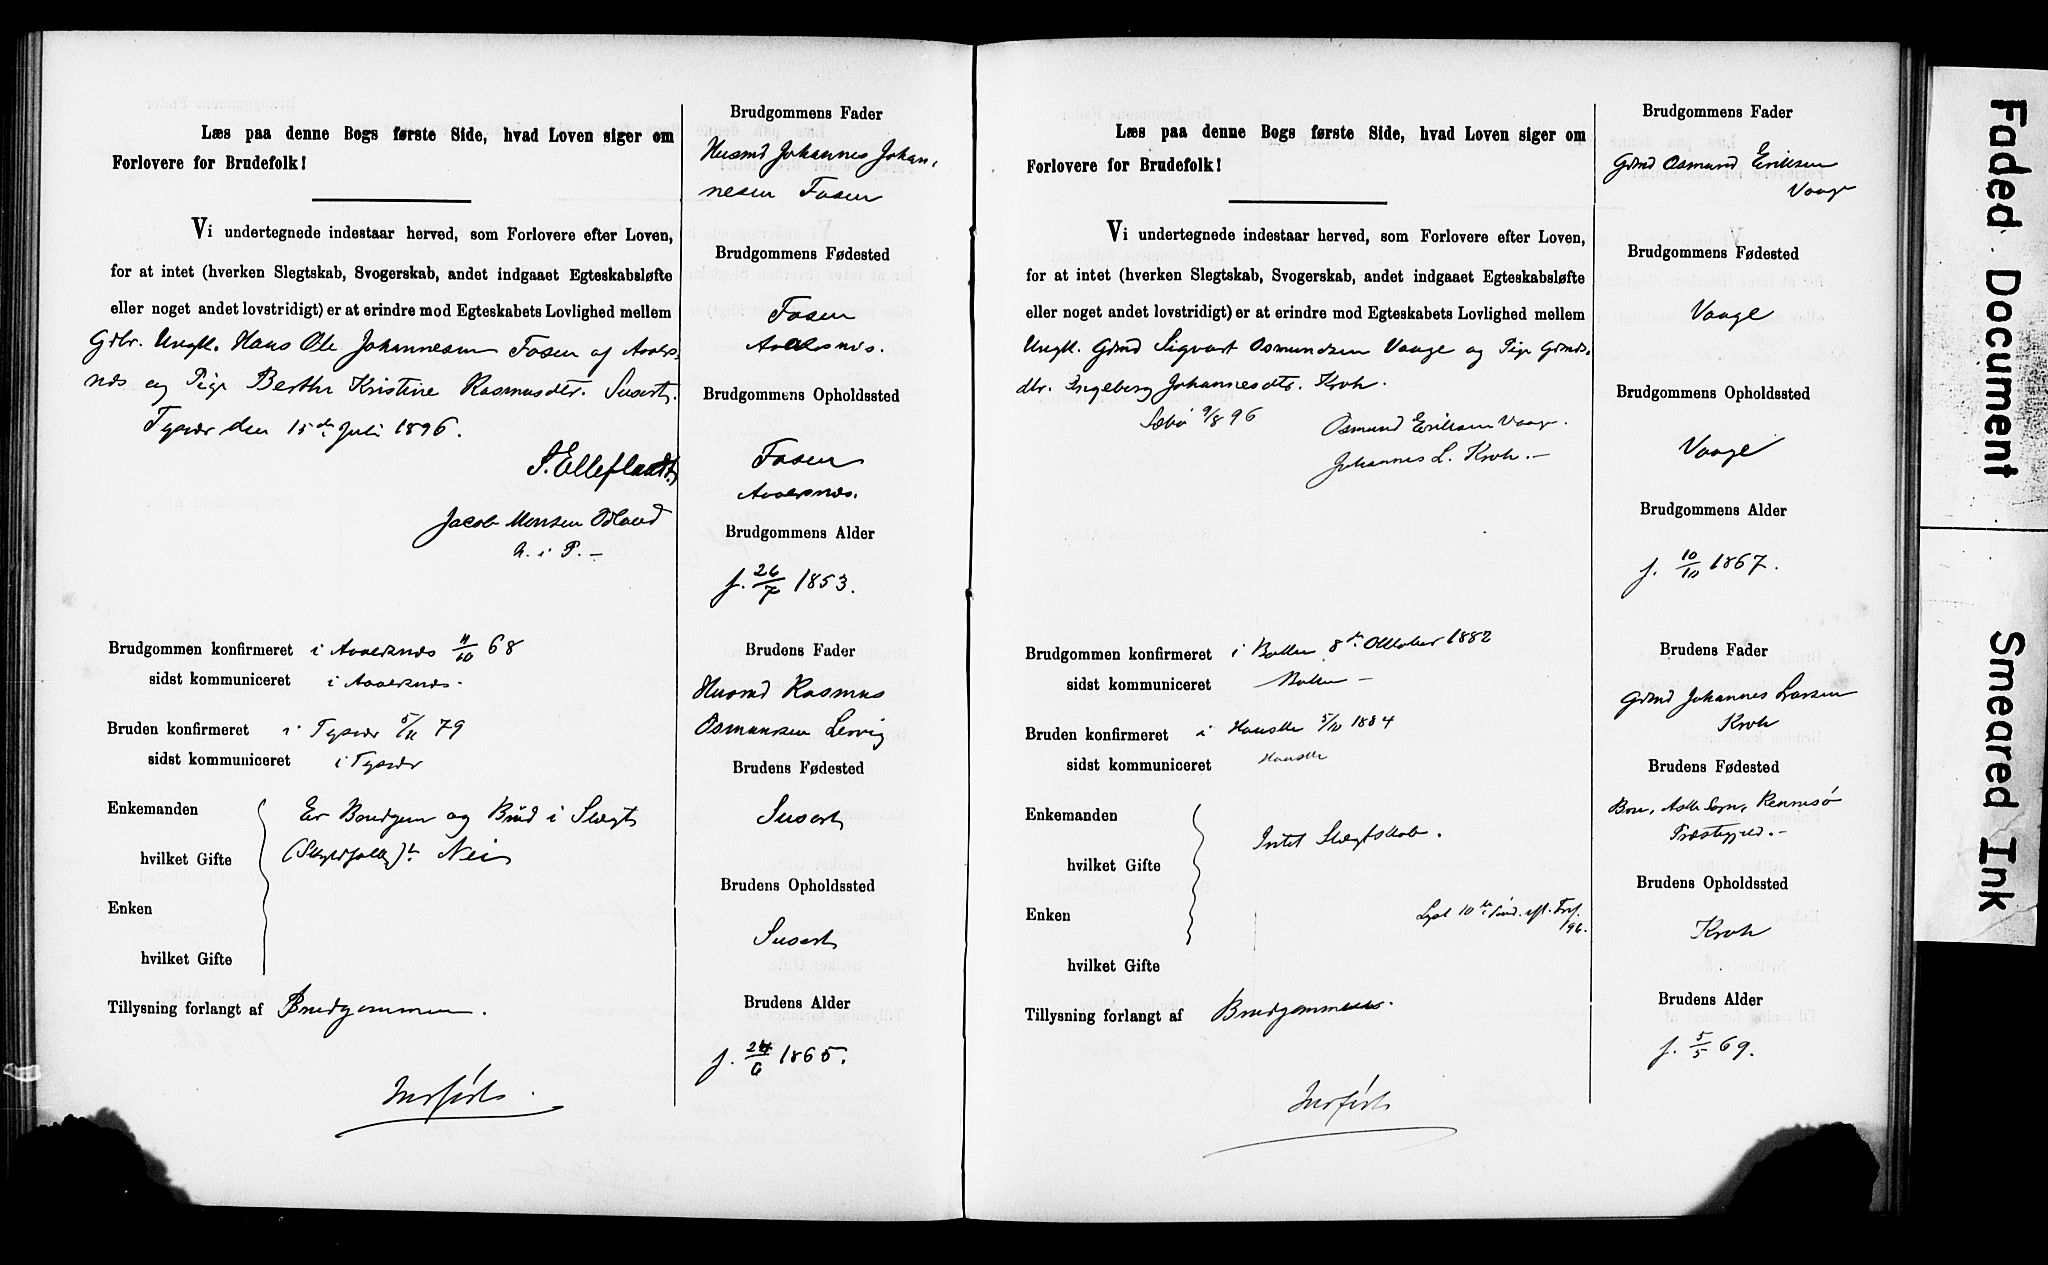 Læs paa denne Bogs første Side, hvad Loven siger om
Forlovere for Brudefolk!
Vi undertegnede indestaar herved, som Forlovere efter Loven,
for at intet (hverken Slegtskab, Svogerskab, andet indgaaet Egteskabsløfte
eller noget andet lovstridigt) er at erindre mod Egteskabets Lovlighed mellem
Gdbr. Ungk. Hans Ole Johannesen Fosen af Avalds-
næs og Pige Berthe Kristine Rasmusdtr. Susort.
Tysvær den 15de Juli 1896.
S. Elleflaadt.
Jacob Monsen Odland
m. i P. –
Brudgommen konfirmeret i Avaldsnæs 11/10 68
sidst kommuniceret i Avaldsnæs.
Bruden konfirmeret i Tysvær 5/11 79
sidst kommuniceret i Tysvær
Enkemanden
Er Brudgom og Brud i Slægt
hvilket Gifte
Nei
Enken
hvilket Gifte
Tillysning forlangt af Brudgommen.
Indført.
Brudgommens Fader
Husmd Johannes Johan-
nesen Fosen
Brudgommens Fødested
Fosen
Avaldsnæs.
Brudgommens Opholdssted
Fosen
Avaldsnæs.
Brudgommens Alder
f. 26/7 1853.
Brudens Fader
Husmd Rasmus
Osmundsen Lervig
Brudens Fødested
Susort
Brudens Opholdssted
Susort
Brudens Alder
f. 24/6 1865.
Læs paa denne Bogs første Side, hvad Loven siger om
Forlovere for Brudefolk!
Vi undertegnede indestaar herved, som Forlovere efter Loven,
for at intet (hverken Slegtskab, Svogerskab, andet indgaaet Egteskabsløfte
eller noget andet lovstridigt) er at erindre mod Egteskabets Lovlighed mellem
Ungk. Grmd Sigvart Osmundsen Vaage og Pige Grmds-
dtr. Ingeborg Johannesdtr. Kroh.
Sæbø 9/8 96
Osmund Eriksen Vaage.
Johannes L. Kroh. –
Brudgommen konfirmeret i Bokn 8de Oktober 1882
sidst kommuniceret Bokn –
Bruden konfirmeret i Hauske 5/10 1884
sidst kommuniceret Hauske
Enkemanden
Intet Slægtskab.
hvilket Gifte
Enken
Lyst 10de Sønd. eft. Tref.
/96.
hvilket Gifte
Tillysning forlangt af Brudgommen.
Indført
Brudgommens Fader
Grmd Osmund Eriksen
Vaage
Brudgommens Fødested
Vaage
Brudgommens Opholdssted
Vaage
Brudgommens Alder
f. 10/10 1867.
Brudens Fader
Grmd Johannes Larsen
Kroh
Brudens Fødested
Boe, Aske Sogn, Rennesø
Præstegjeld. –
Brudens Opholdssted
Kroh
Brudens Alder
f. 5/5 69.
Faded Document
Smeared Ink